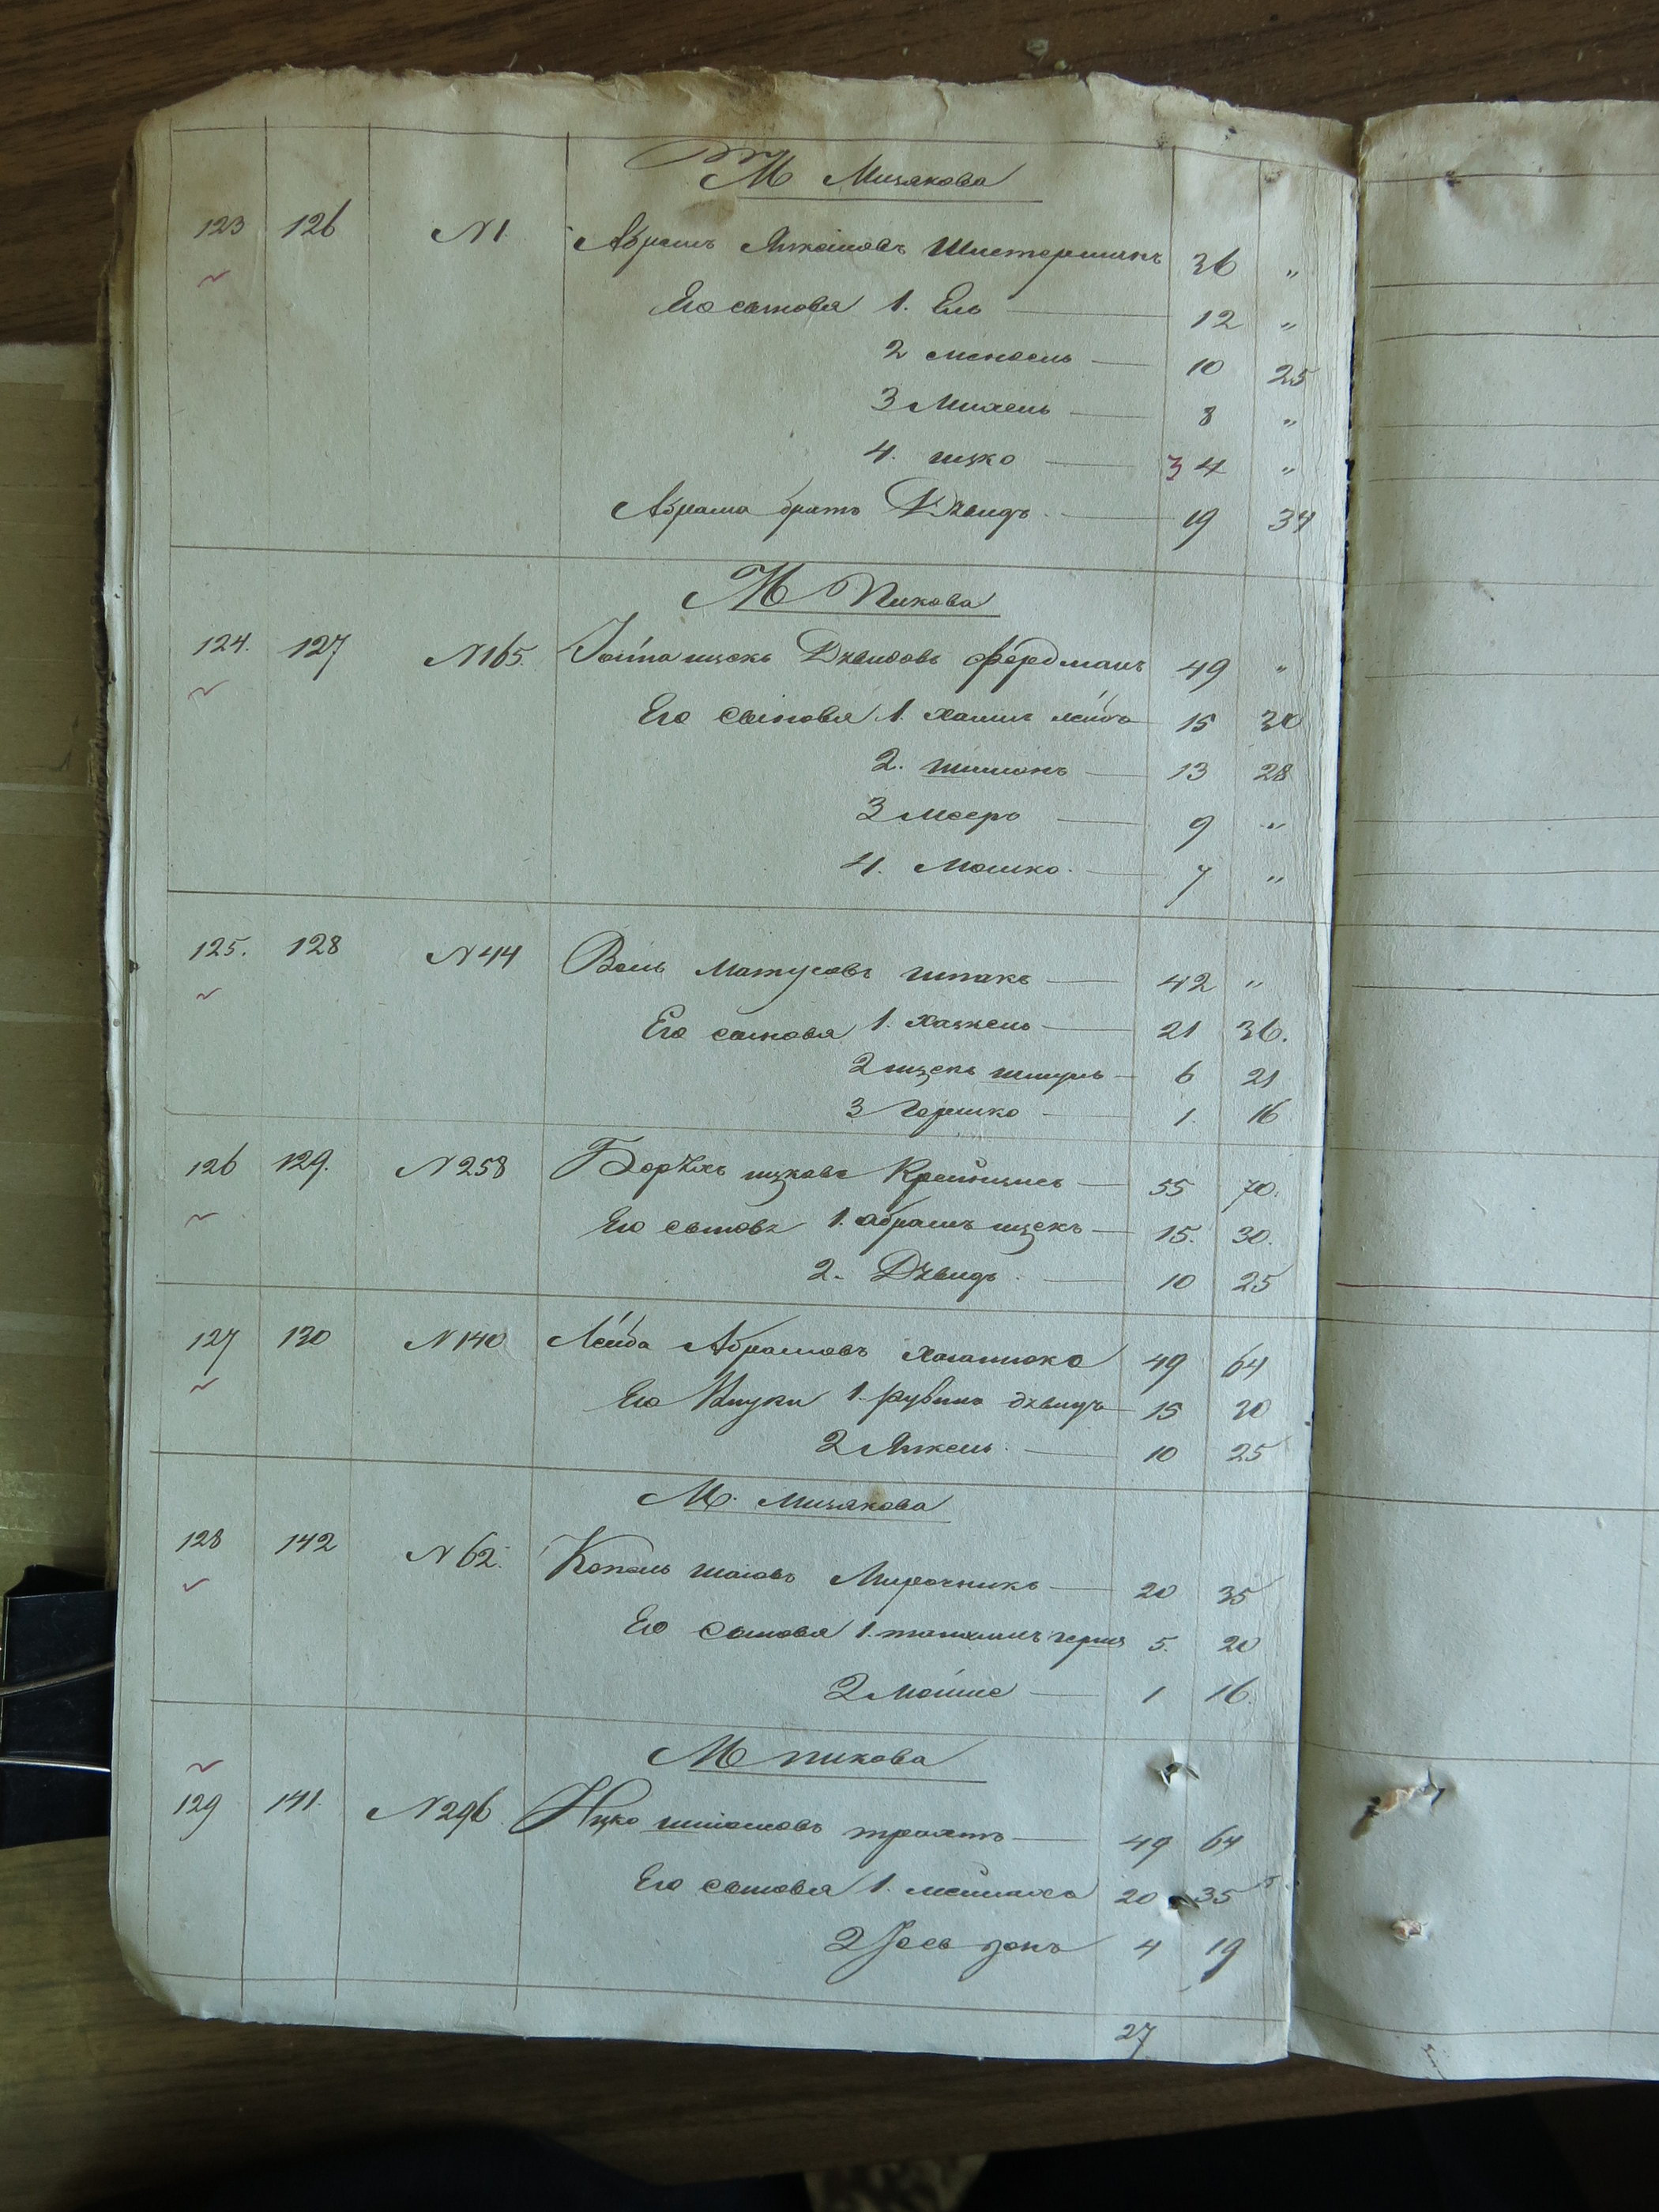 М Мизякова
123 126 N1. Абрамъ Янкелевъ Шистерманъ 36 „
Его сыновя 1. Ель 12 „
2 Мендель 10 25
3 Михель 8 „
4. ицко 3 4 „
Абрама братъ Дувидъ 19 34
М Пикова
124. 127 N165. Іойна ицекъ Дувидовъ фердманъ 49 „
Его сыновя 1. Хаимъ лейба 15 30
2. шимонъ 13 28
3 Мееръ 9 „
4. Мошко. 7 „
125. 128 N44 Воль Матусовъ шпакъ 42 „
Его сыновя 1. Хацкель 21 36.
2 ицекъ шмуль 6 21
3 Гершко 1. 16
126 129. N258 Борухъ ицковъ Крейнцисъ 55 70.
Его сыновя 1. абрамъ ицекъ 15. 30.
2. Дувидъ. 10 25
127 130 N140 Лейба Абрамовъ 49 64
Его Внуки 1. рувинъ дувидъ 15 30
2 Янкель. 10 25
М. Мизякова
128 142 N62. Копель Мирочникъ 20 35
Его сыновя 1. 5. 20
2 Мойше 1 16.
М пикова
129 141. N296. Ицко шлiомовъ трахтъ 49 64
Его сыновя 1. 20 35
2 Іось зонъ 4 19
27